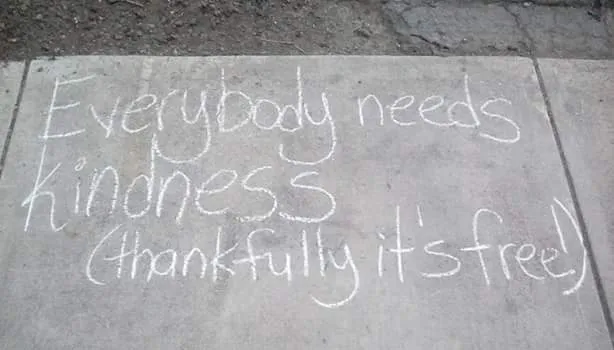 Everybody needs
kindness
(thankfully it's free!)